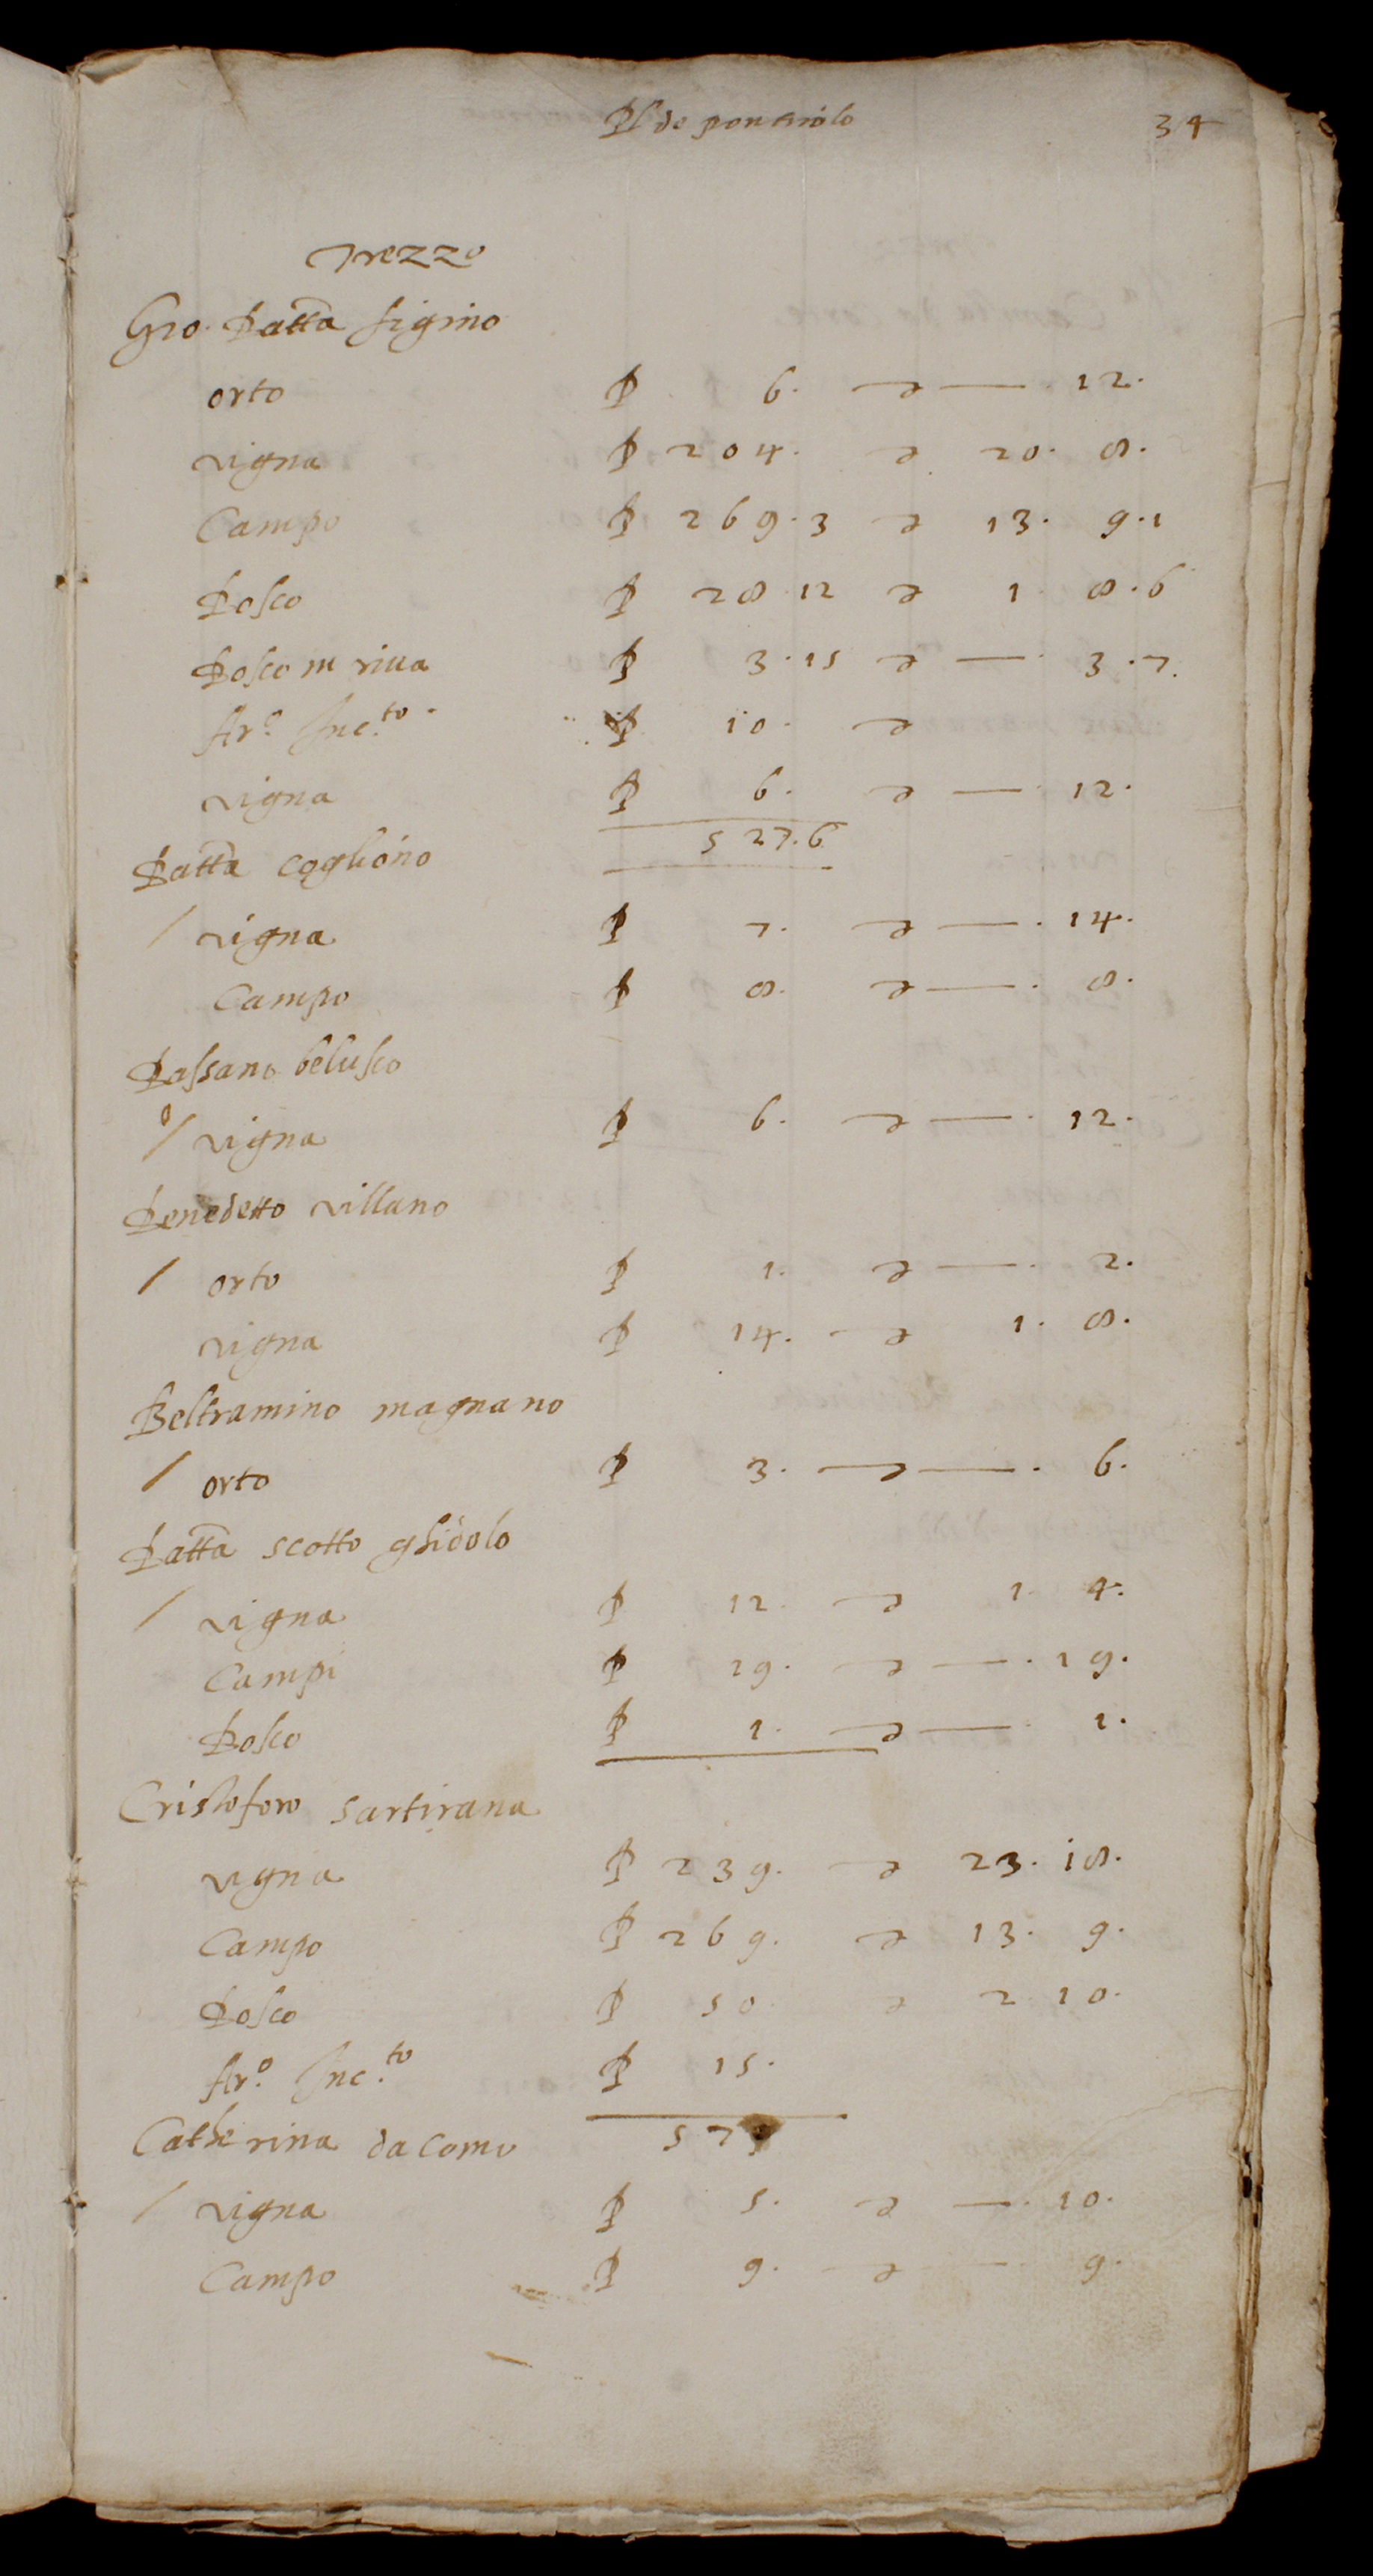 Pl de pontirolo 34
Trezzo
Gio. Batta figino
orto P 6. — 12.
vigna P 204. 20. 8.
Campo P 269.3 13. 9.1
Bosco P 28.12 1. 8.6
Bosco in riua P 3.15 — 3.7.
Ar.o Inc.to P 10.
vigna P 6. — 12.
527.6
Batta cogliono
/ vigna P 7. — 14.
Campo P 8. — 8.
Bassano belusco
/ vigna P 6. — 12.
Benedetto villano
/ orto P 1. — 2.
vigna P 14. 1. 8.
Beltramino magnano
/ orto P 3. — 6.
Batta scotto ghidolo
/ vigna P 12. 1. 4.
Campi P 19. — 19.
Bosco P 1. — 1.
Cristoforo sartirana
vigna P 239. 23. 18.
Campo P 269. 13. 9.
Bosco P 50. 2. 10.
Ar.o Inc.to P 15.
Catherina da Como
/ vigna P 5. — 10.
Campo P 9. — 9.